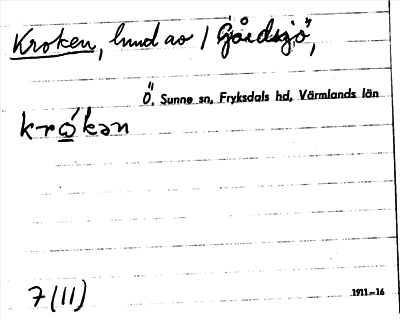 Kroken, hmd av / Gårdsjö,
Ö. Sunne sn, Fryksdals hd, Värmlands län
kró̲kən
7 (11)
1911–16